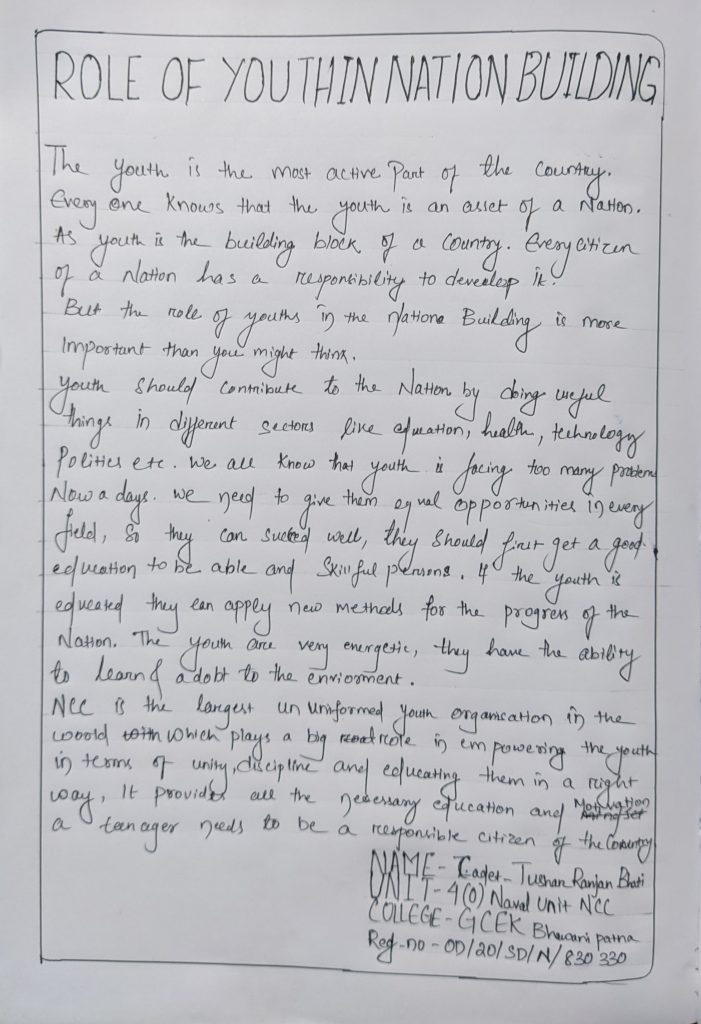 ROLE OF YOUTH IN NATION BUILDING
The youth is the most active part of the country.
Every one knows that the youth is an asset of a Nation.
As youth is the building block of a country. Every citizen
of a Nation has a responsibility to develop it.
But the role of youths in the Nation Building is more
important than you might think.
Youth should contribute to the Nation by doing useful
things in different sectors like education, health, technology
Politics etc. We all know that youth is facing too many problem
Now a days. We need to give them equal opportunities in every
field, So they can succed well, they should first get a good
education to be able and skillful persons. If the youth is
educated they can apply new methods for the progress of the
Nation. The youth are very energetic, they have the ability
to learn & adobt to the enviorment.
NCC is the largest un uniformed youth organisation in the
woorld which plays a big role in empowering the youth
in terms of unity, discipline and educating them in a right
way, It provides all the necessary education and Motivation
a teenager needs to be a responsible citizen of the Country
NAME - Cadet - Tushar Ranjan Bhati
UNIT - 4(O) Naval Unit NCC
COLLEGE - GCEK Bhawani patna
Reg-no - OD/20/SD/N/830 330